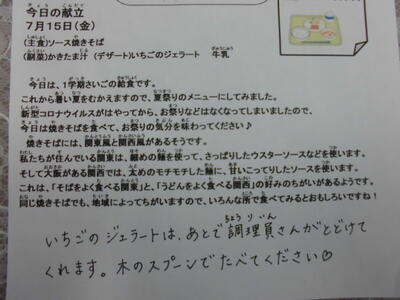 今日の献立
7月15日(金)
(主食)ソース焼きそば
(副菜)かきたま汁 (デザート)いちごのジェラート 牛乳
今日は、1学期さいごの給食です。
これから暑い夏をむかえますので、夏祭りのメニューにしてみました。
新型コロナウイルスがはやってから、お祭りなどはなくなってしまいましたので、
今日は焼きそばを食べて、お祭りの気分を味わってください♪
焼きそばには、関東風と関西風があるそうです。
私たちが住んでいる関東は、細めの麺を使って、さっぱりしたウスターソースなどを使います。
そして大阪がある関西では、太めのモチモチした麺に、甘いこってりしたソースを使います。
これは、「そばをよく食べる関東」と、「うどんをよく食べる関西」の好みのちがいがあるようです。
同じ焼きそばでも、地域によってちがいますので、いろんな所で食べてみるとおもしろいですね!
いちごのジェラートは、あとで調理員さんがとどけて
くれます。木のスプーンでたべてください♡